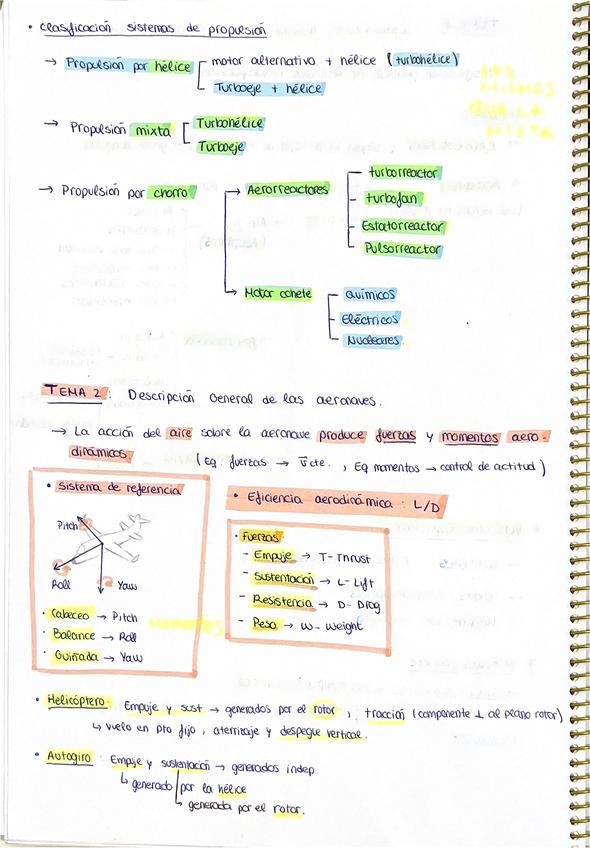 • Clasificación sistemas de propulsión
→ Propulsión por hélice motor alternativo + hélice (turbohélice)
Turboeje + hélice
→ Propulsión mixta Turbohélice
Turboeje
→ Propulsión por chorro → Aerorreactores turborreactor
turbofan
Estatorreactor
Pulsorreactor
→ Motor cohete químicos
Eléctricos
Nucleares
TEMA 2: Descripción General de las aeronaves.
→ La acción del aire sobre la aeronave produce fuerzas y momentos aero-
dinámicos. (Eq. fuerzas → v cte. , Eq momentos → control de actitud)
• Sistema de referencia
Pitch
Roll Yaw
• Cabeceo → Pitch
• Balance → Roll
• Guiñada → Yaw
• Eficiencia aerodinámica : L/D
• Fuerzas:
- Empuje → T- Thrust
- Sustentación → L- Lift
- Resistencia → D- Drag
- Peso → W- Weight
• Helicóptero: Empuje y sust → generados por el rotor , tracción (componente ⊥ al plano rotor)
↳ vuelo en pto fijo , aterrizaje y despegue vertical.
• Autogiro: Empuje y sustentación → generados indep.
↳ generado por la hélice
↳ generada por el rotor.